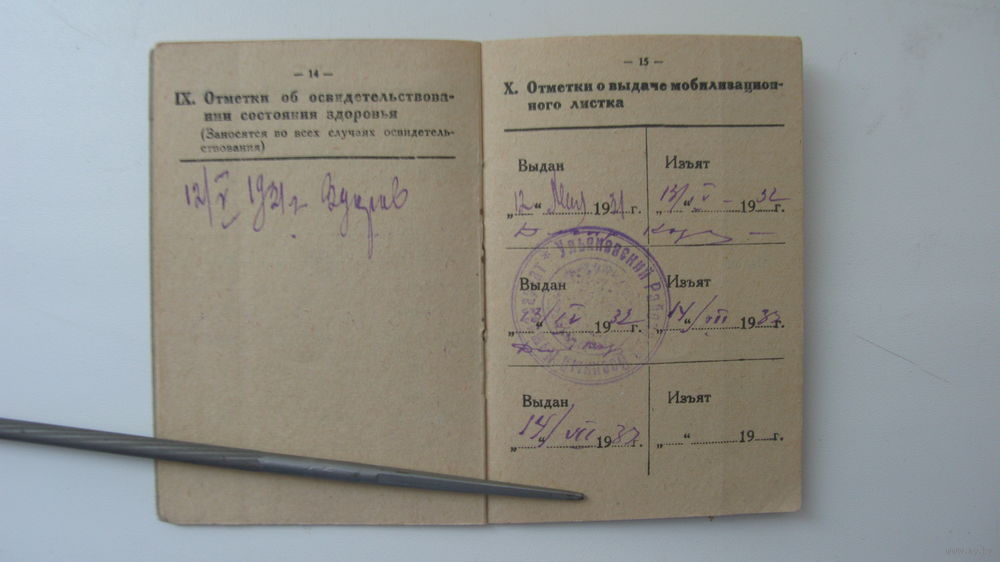 — 14 —
IX. Отметки об освидетельствова-
нии состояния здоровья
(Заносятся во всех случаях освидетель-
ствования)
12/V 1931 г.
— 15 —
X. Отметки о выдаче мобилизацион-
ного листка
Выдан Изъят
„12“ Мая 1931 г. „13/“ V 1932 г.
УЛЬЯНОВСКИЙ
Выдан Изъят
„23/“ IV 1932 г. „14“/VII 1932 г.
Выдан Изъят
„14/“ VII 1932 г. „ “ 19 г.